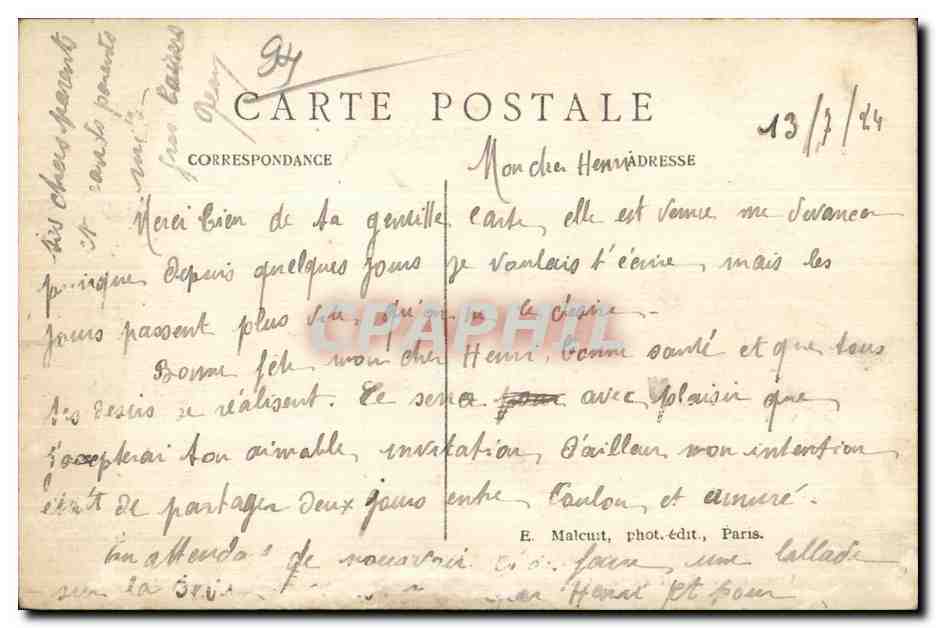 94
CARTE POSTALE
13/7/24
CORRESPONDANCE
ADRESSE
Mon cher Henri
Merci bien de ta gentille carte, elle est venue me devancer
puisque depuis quelques jours je voulais t'écrire, mais les
jours passent plus vite qu'on ne le désire.
Bonne fête, mon cher Henri, bonne santé et que tous
tes désirs se réalisent. Ce sera avec plaisir que
j'accepterai ton aimable invitation, d'ailleurs mon intention
était de partager deux jours entre Toulon et
E. Malcuit, phot.-édit., Paris.
En attendant de pouvoir faire une ballade
sur la Henri et pour
tes chers parents
et parents
baisers
Jean
CPAPHIL